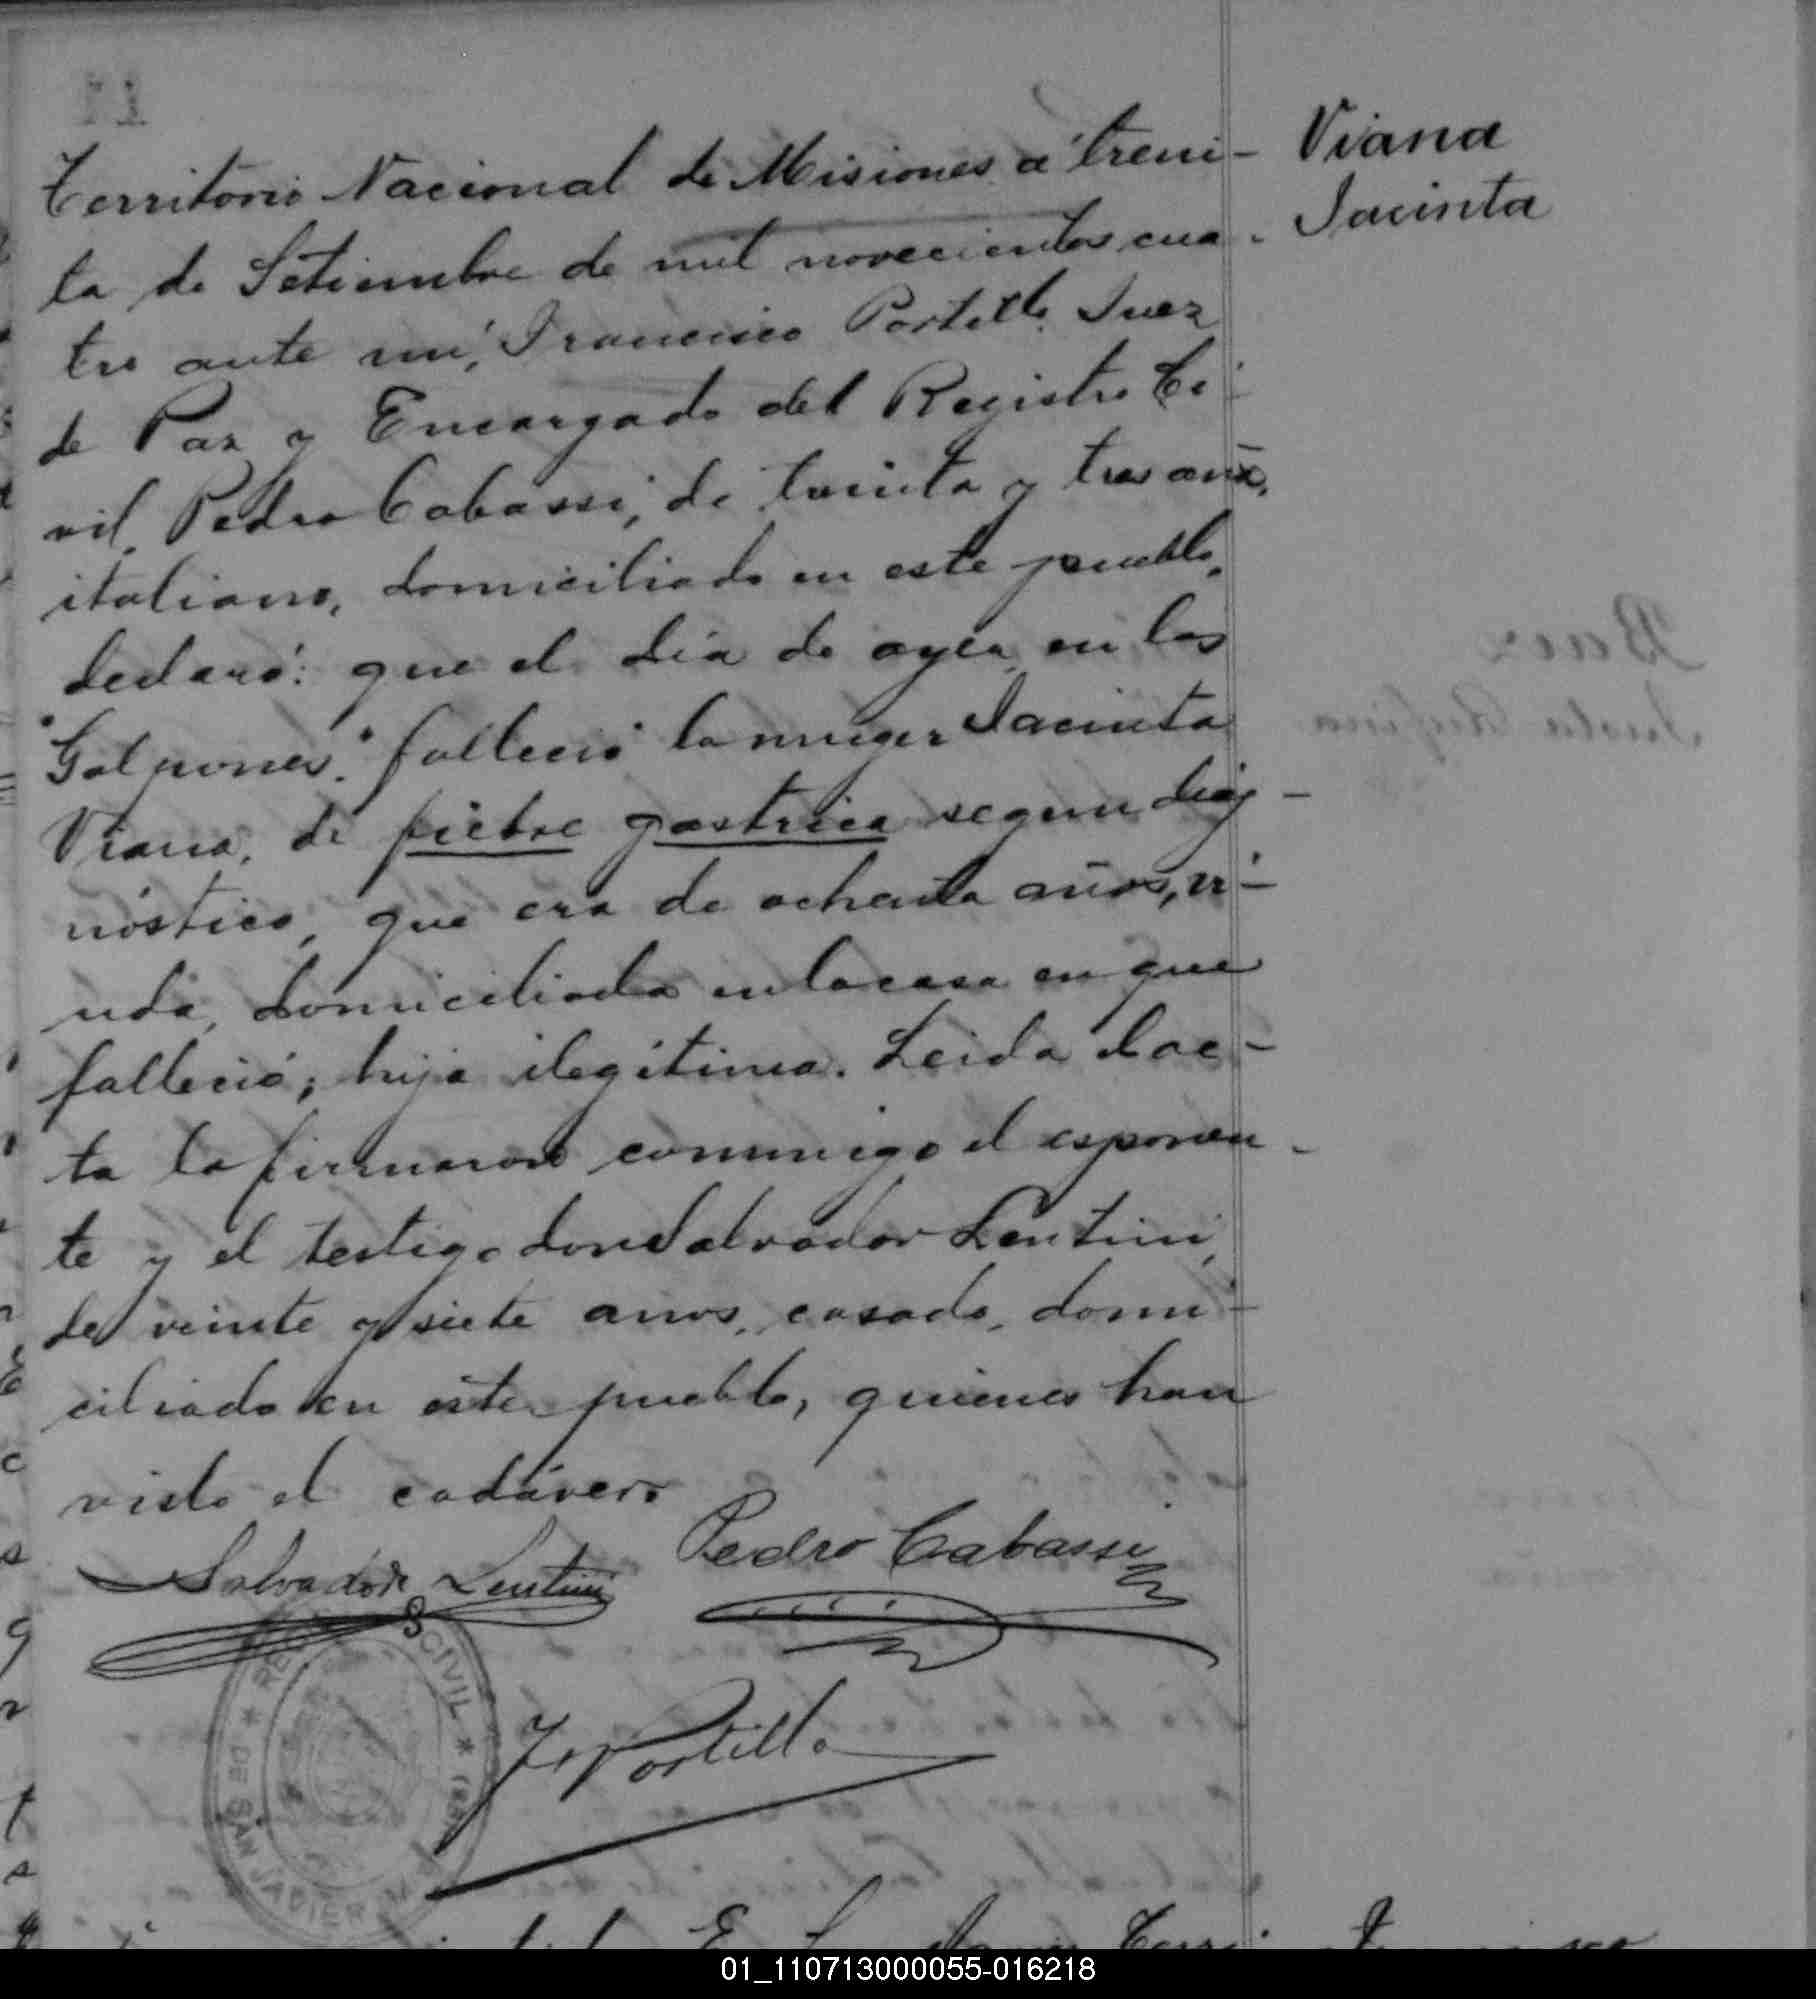 Viana
Jacinta
Territorio Nacional de Misiones a trein-
ta de Setiembre de mil novecientos cua-
tro ante mi, Francisco Portillo Juez
de Paz y Encargado del Registro Ci-
vil, Pedro Cabassi, de treinta y tres años,
italiano, domiciliado en este pueblo,
declaró: que el dia de ayer en los
"Galpones" falleció la muger Jacinta
Viana, de fiebre gastrica segun diag-
nóstico, que era de ochenta años, vi-
uda, domiciliada en la casa en que
falleció; hija ilegítima. Leida el ac-
ta la firmaron conmigo el esponen-
te y el testigo don Salvador Lentini,
de veinte y siete anos, casado, domi-
ciliado en este pueblo, quienes han
visto el cadáver.
Pedro Cabassi
Salvador Lentini
CIVIL
DE SAN JAVIER
F. Portillo
01_110713000055-016218